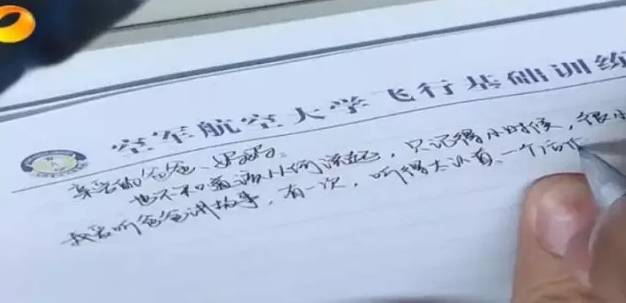 空军航空大学飞行基础训练
亲爱的爸爸、妈妈:
也不知道该从何说起,只记得小时候,很小
我爱听爸爸讲故事,有一次,听得太认真、一个